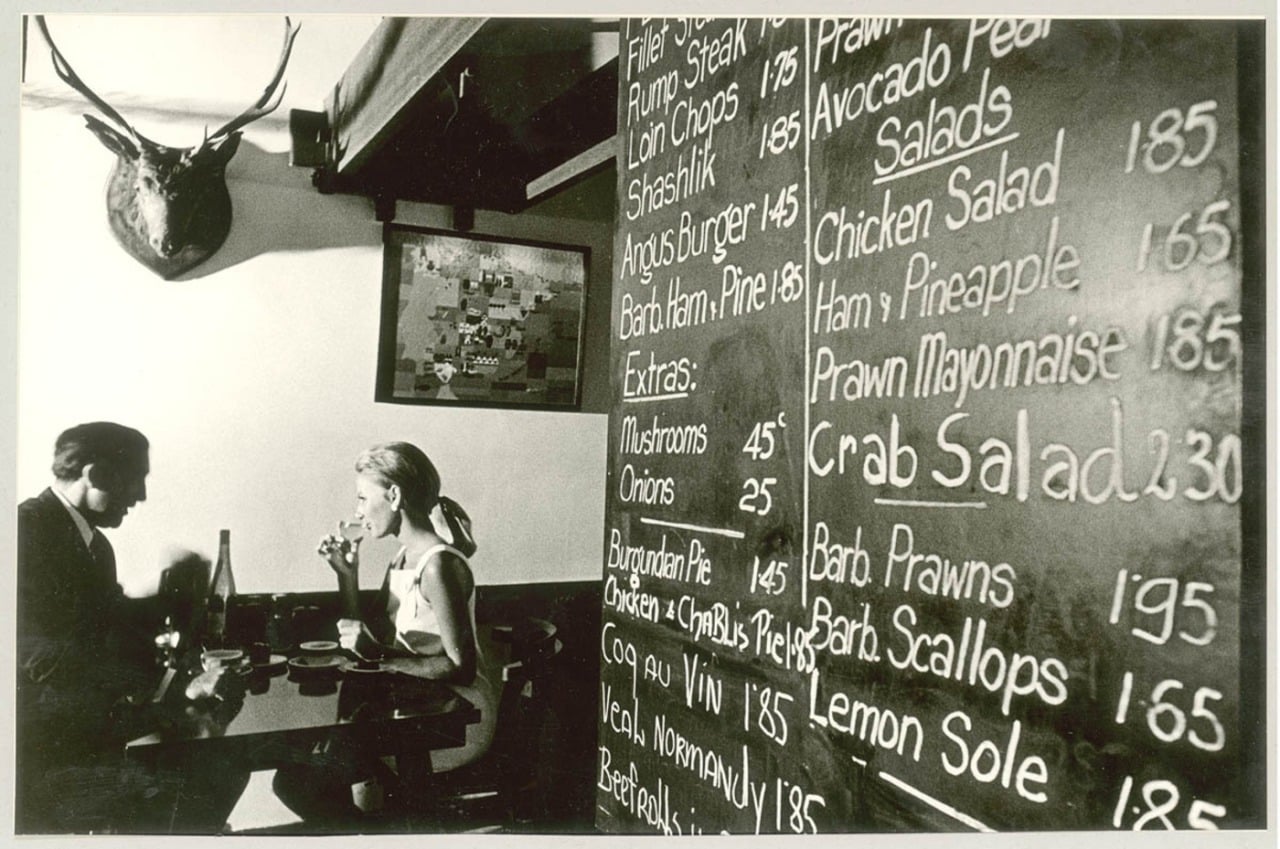 Fillet
Rump Steak
Loin Chops 1.75
Shashlik 1.85
Angus Burger 1.45
Barb. Ham & Pine 1.85
Extras:
Mushrooms 45c
Onions 25
Burgundian Pie 1.45
Chicken & CHABLis Pie 1.85
Coq AU VIN 1.85
VEAL NORMANdy 1.85
Beefrolls
Prawn
Avocado Pear
Salads
1.85
Chicken Salad 1.65
Ham & Pineapple 1.85
Prawn Mayonnaise
Crab Salad 2.30
Barb. Prawns 1.95
Barb. Scallops 1.65
Lemon Sole 1.85